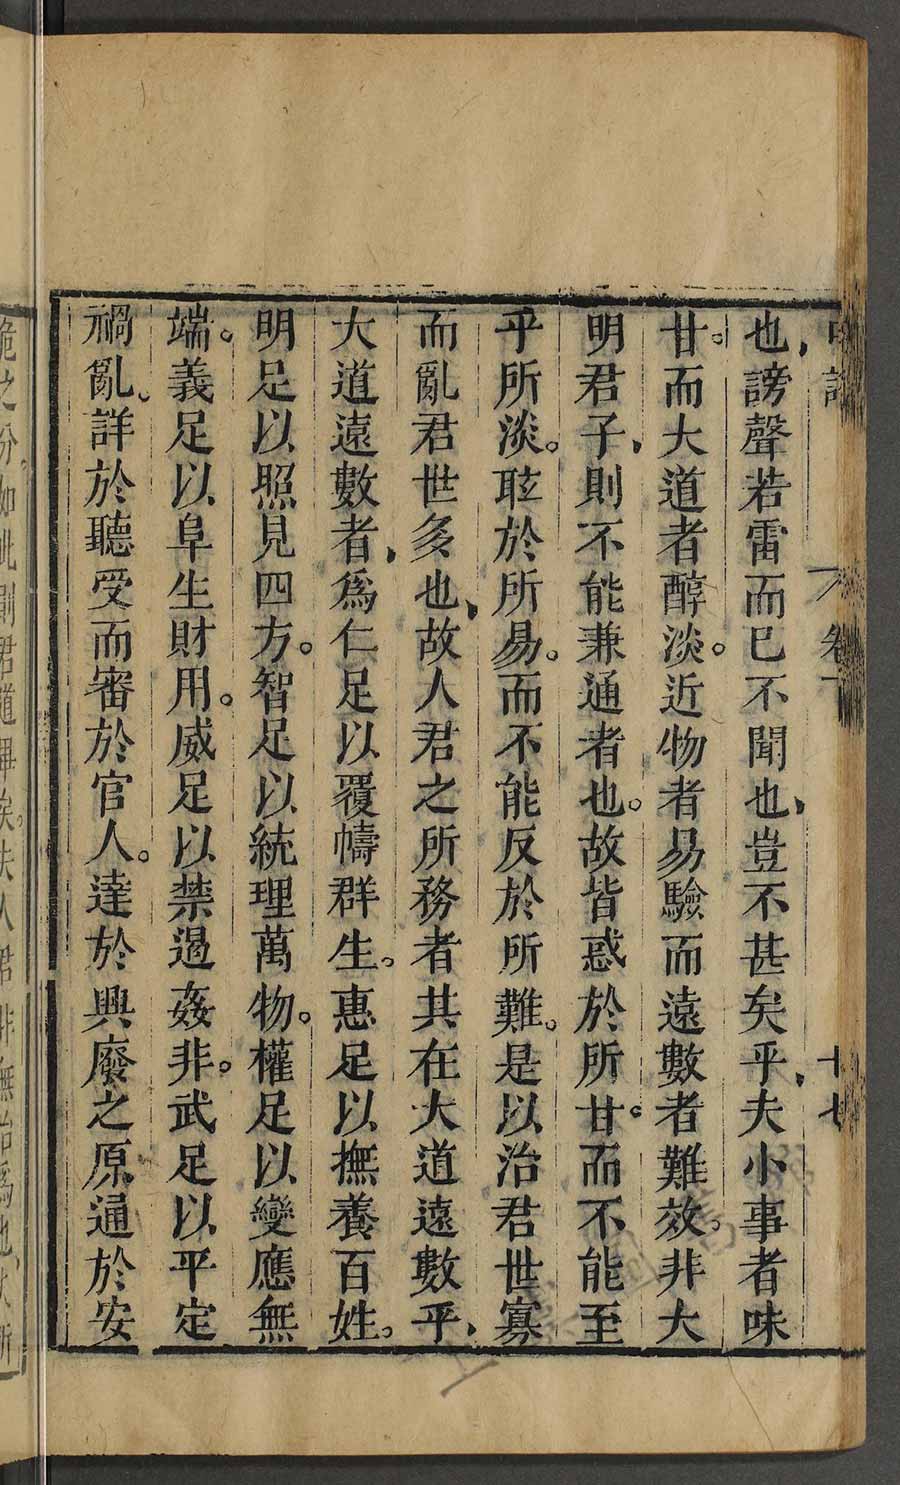 中論 卷下 十七
也，謗聲若雷而已不聞也，豈不甚矣乎，夫小事者味
甘。而大道者醇淡。近物者易驗而遠數者難效。非大
明君子，則不能兼通者也。故皆惑於所甘。而不能至
乎所淡。眩於所易。而不能反於所難。是以治君世寡
而亂君世多也，故人君之所務者其在大道遠數乎，
大道遠數者，爲仁足以覆幬群生。惠足以撫養百姓。
明足以照見四方。智足以統理萬物。權足以變應無
端。義足以阜生財用。威足以禁遏姦非。武足以平定
禍亂。詳於聽受而審於官人。達於興廢之原，通於安
之分。如此則君道畢矣。夫人君非無治爲也，失所